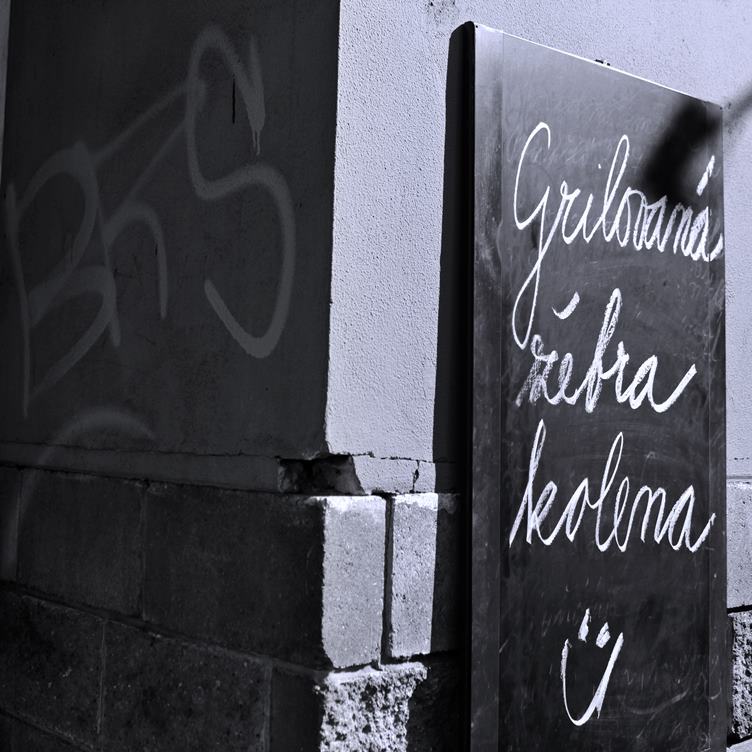 BhS
Grilovaná
žebra
kolena